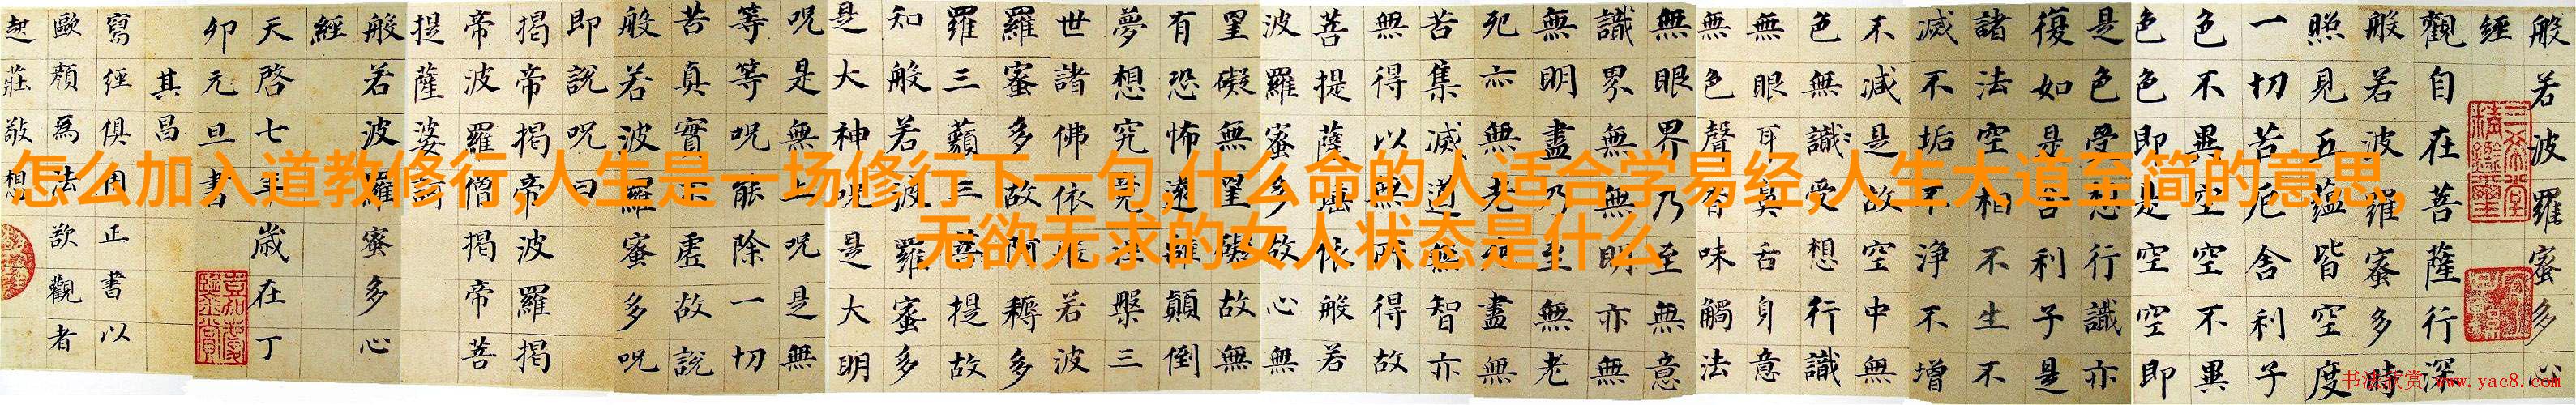 怎么加入道教修行,人生是一场修行下一句,什么命的人适合学易经,人生大道至简的意思,
无欲无求的女人状态是什么
般若波羅蜜多心
經
觀自在菩薩行深
般若波羅蜜多時
照見五蘊皆空度
一切苦厄舍利子
色不異空空不異
色色即是空空即
是色受想行識亦
復如是舍利子是
諸法空相不生不
滅不垢不淨不增
不減是故空中無
色無識受想行識
無眼耳鼻舌身意
無色聲香味觸法
無眼界乃至無意
識界無無明亦無
無明盡乃至無老
死亦無老死盡無
苦集滅道無智亦
無得以無所得故
菩提薩埵依般若
波羅蜜多故心無
罣礙無罣礙故無
有恐怖遠離顛倒
夢想究竟涅槃三
世諸佛依般若波
羅蜜多故阿耨多
羅三藐三菩提故
知般若波羅蜜多
是大神呪是大明
呪是無上呪是無
等等呪能除一切
苦真實不虛故說
般若波羅蜜多呪
即說呪曰
揭帝揭帝波羅揭
帝波羅僧揭帝菩
提薩婆訶
般若波羅蜜多心
經
天啓七年歲在丁
卯元旦書
其昌
寫經俱用正書以
歐顏為法欲觀者
起莊敬想
书法欣赏 www.yac8.com